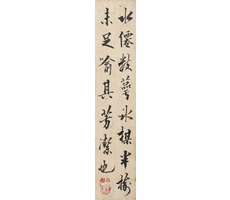 水僊數萼氷楳半樹
未足喻其芳潔也